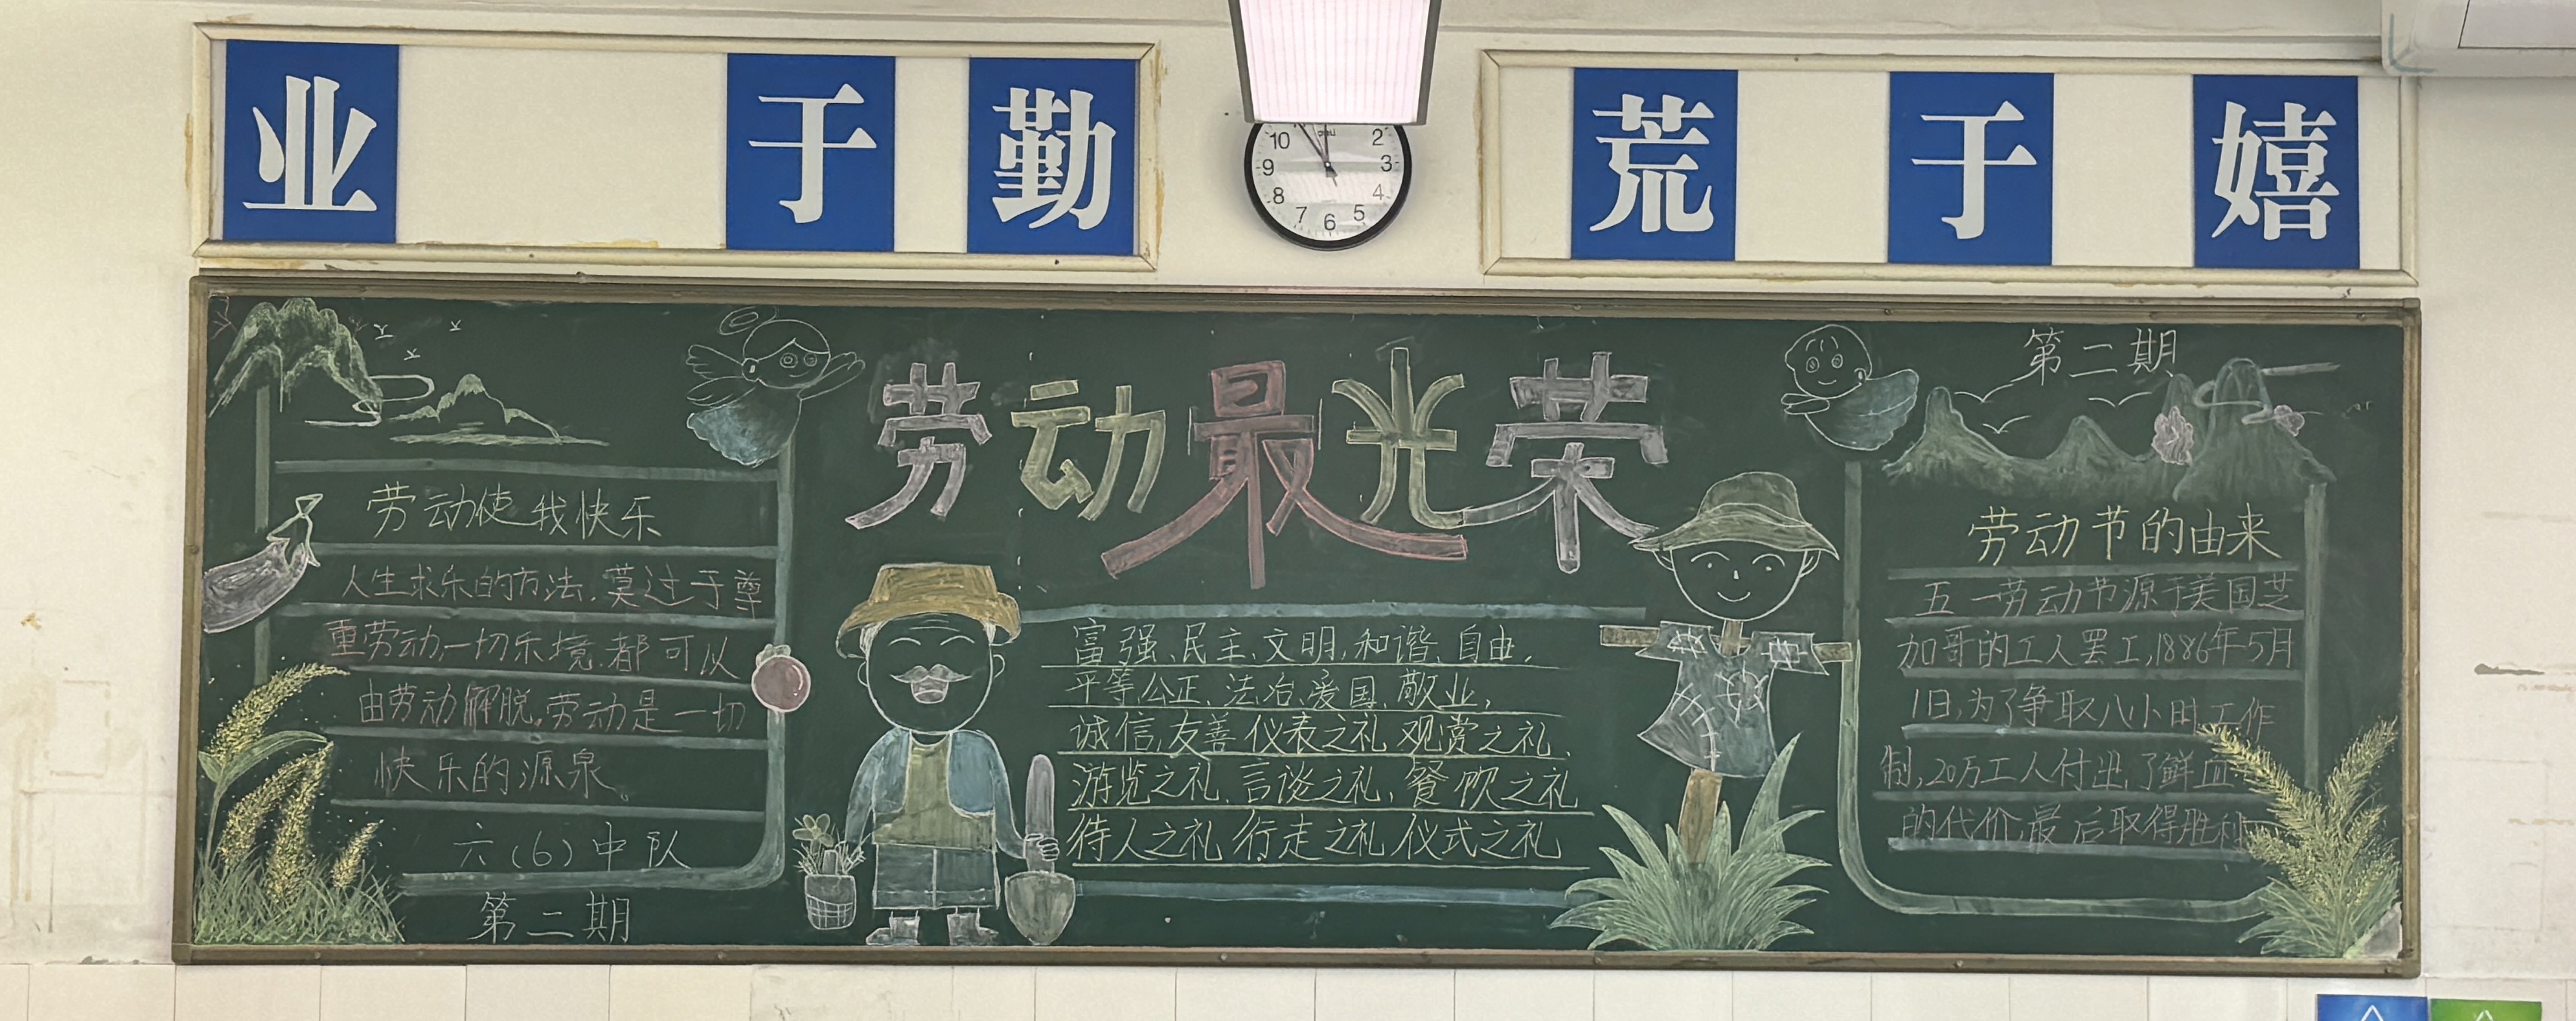 业于勤
荒于嬉
10
2
9
3
8
4
7
6
5
劳动最光荣
劳动使我快乐
人生求乐的方法,莫过于尊
重劳动,一切乐境,都可以
由劳动解脱,劳动是一切
快乐的源泉。
六(6)中队
第二期
富强、民主、文明、和谐、自由,
平等、公正、法治、爱国、敬业,
诚信、友善 仪表之礼 观赏之礼、
游览之礼、言谈之礼,餐饮之礼
待人之礼 行走之礼 仪式之礼
第二期
劳动节的由来
五一劳动节源于美国芝
加哥的工人罢工,1886年5月
1日,为了争取八小时工作
制,20万工人付出了鲜血
的代价,最后取得胜利